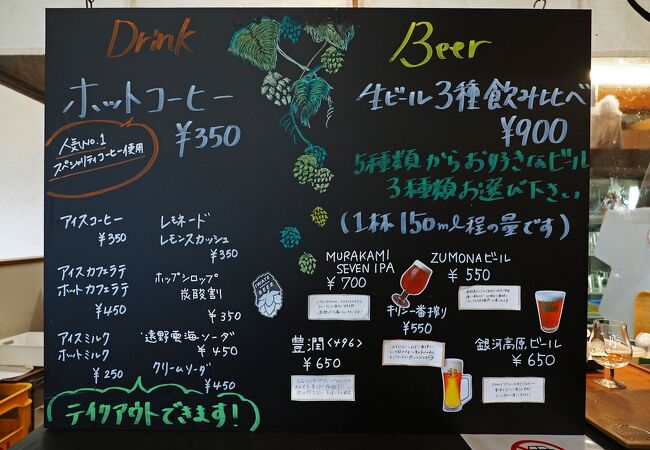 Drink
ホットコーヒー
¥350
人気No.1
スペシャリティコーヒー使用
アイスコーヒー
¥350
アイスカフェラテ
ホットカフェラテ
¥450
アイスミルク
ホートミルク
¥250
レモネード
レモンスカッシュ
¥350
ホップシロップ
炭酸割
¥350
遠野雲海ソーダ
¥450
クリームソーダ
¥450
テイクアウトできます!
Beer
生ビール3種飲み比べ
¥900
5種類からお好きなビール
3種類お選び下さい
(1杯150ml程の量です)
MURAKAMI
SEVEN IPA
¥700
ZUMONAビール
¥550
キリン一番搾り
¥550
豊潤〈496〉
¥650
銀河高原ビール
¥650
BEER